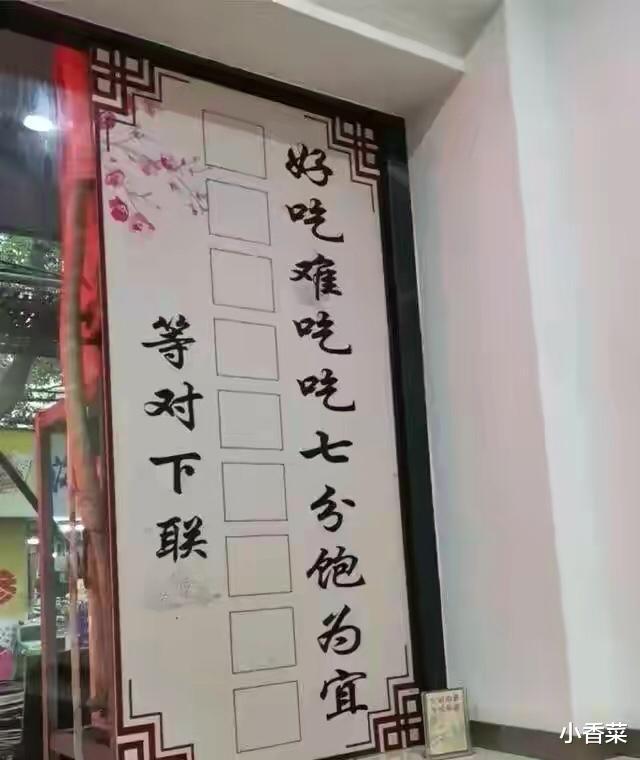 好吃难吃吃七分饱为宜
等对下联
小香菜